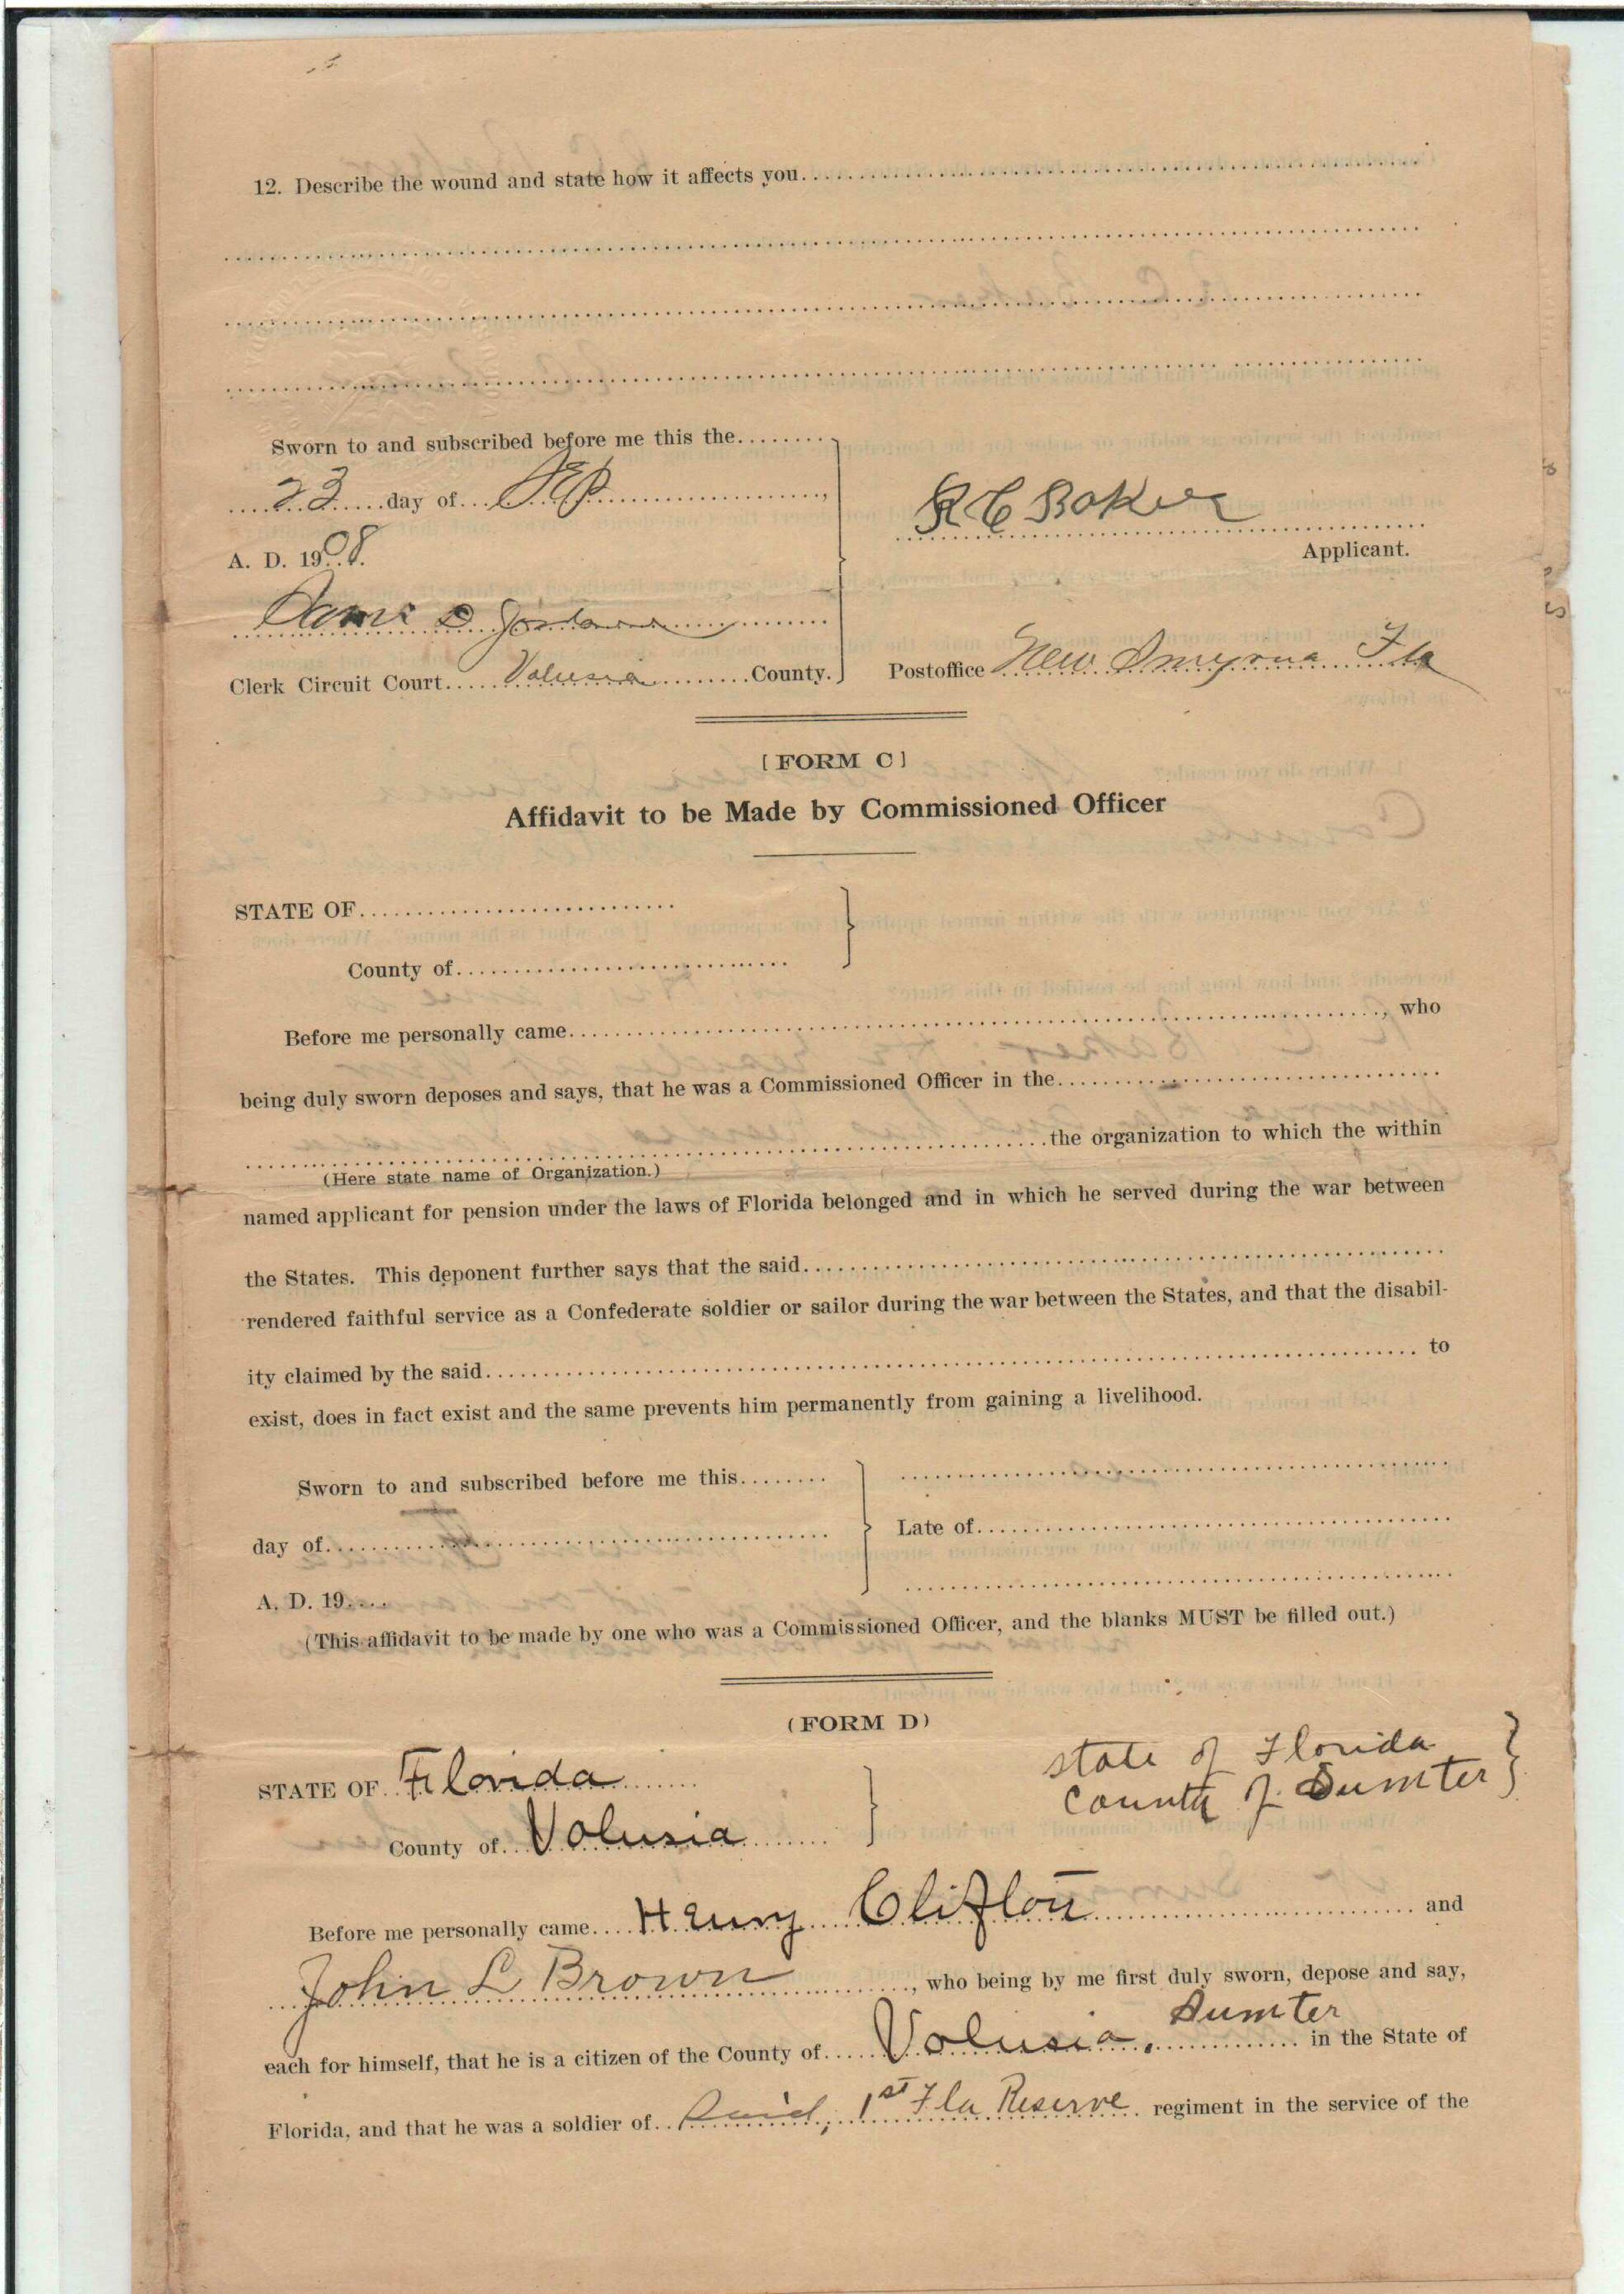 12. Describe the wound and state how it affects you
Sworn to and subscribed before me this the
23 day of Sep
A. D. 1908.
R C Baker
Applicant.
D. Jordan
Clerk Circuit Court Volusia County.
Postoffice New Smyrna Fla
[FORM C]
Affidavit to be Made by Commissioned Officer
STATE OF
County of
Before me personally came , who
being duly sworn deposes and says, that he was a Commissioned Officer in the
the organization to which the within
(Here state name of Organization.)
named applicant for pension under the laws of Florida belonged and in which he served during the war between
the States. This deponent further says that the said
rendered faithful service as a Confederate soldier or sailor during the war between the States, and that the disabil-
ity claimed by the said to
exist, does in fact exist and the same prevents him permanently from gaining a livelihood.
Sworn to and subscribed before me this
day of
Late of
A. D. 19
(This affidavit to be made by one who was a Commissioned Officer, and the blanks MUST be filled out.)
(FORM D)
state of Florida
County of Sumter
STATE OF Florida
County of Volusia
Before me personally came Henry Clifton and
John L Brown , who being by me first duly sworn, depose and say,
Sumter
each for himself, that he is a citizen of the County of Volusia, in the State of
Florida, and that he was a soldier of said, 1st Fla Reserve regiment in the service of the